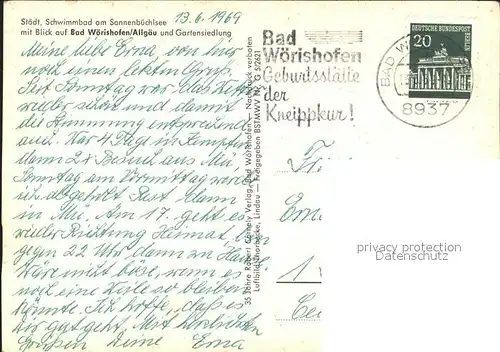 Städt. Schwimmbad am Sonnenbüchlsee
mit Blick auf Bad Wörishofen/Allgäu und Gartensiedlung
13.6.1969
Meine liebe Erna, von hier
noch einen letzten Gruß.
Seit Sonntag war das Wetter
wieder schön und damit
die Stimmung entsprechend
auch. War 4 Tage in Kempten
dann 2 x Besuch aus Mü,
Sonntag am Vormittag werde
ich abgeholt. Rest dann
in Mü. Am 17. geht es
wieder Richtung Heimat,
gegen 22 Uhr dann zu Hause.
Wäre nicht böse, wenn es
noch eine Weile so bleiben
könnte. Ich hoffe, daß es
Dir gut geht. Mit herzlichen
Grüßen Deine Erna
35 Jahre Robert Cornely Verlag, Bad Wörishofen — Nachdruck verboten
Luftbild Thorbecke, Lindau — Freigegeben BSTMWV Nr. G
Bad
Wörishofen
Geburtsstätte
der
Kneippkur!
DEUTSCHE BUNDESPOST
BERLIN
20
BAD W
8937
1
privacy protection
Datenschutz